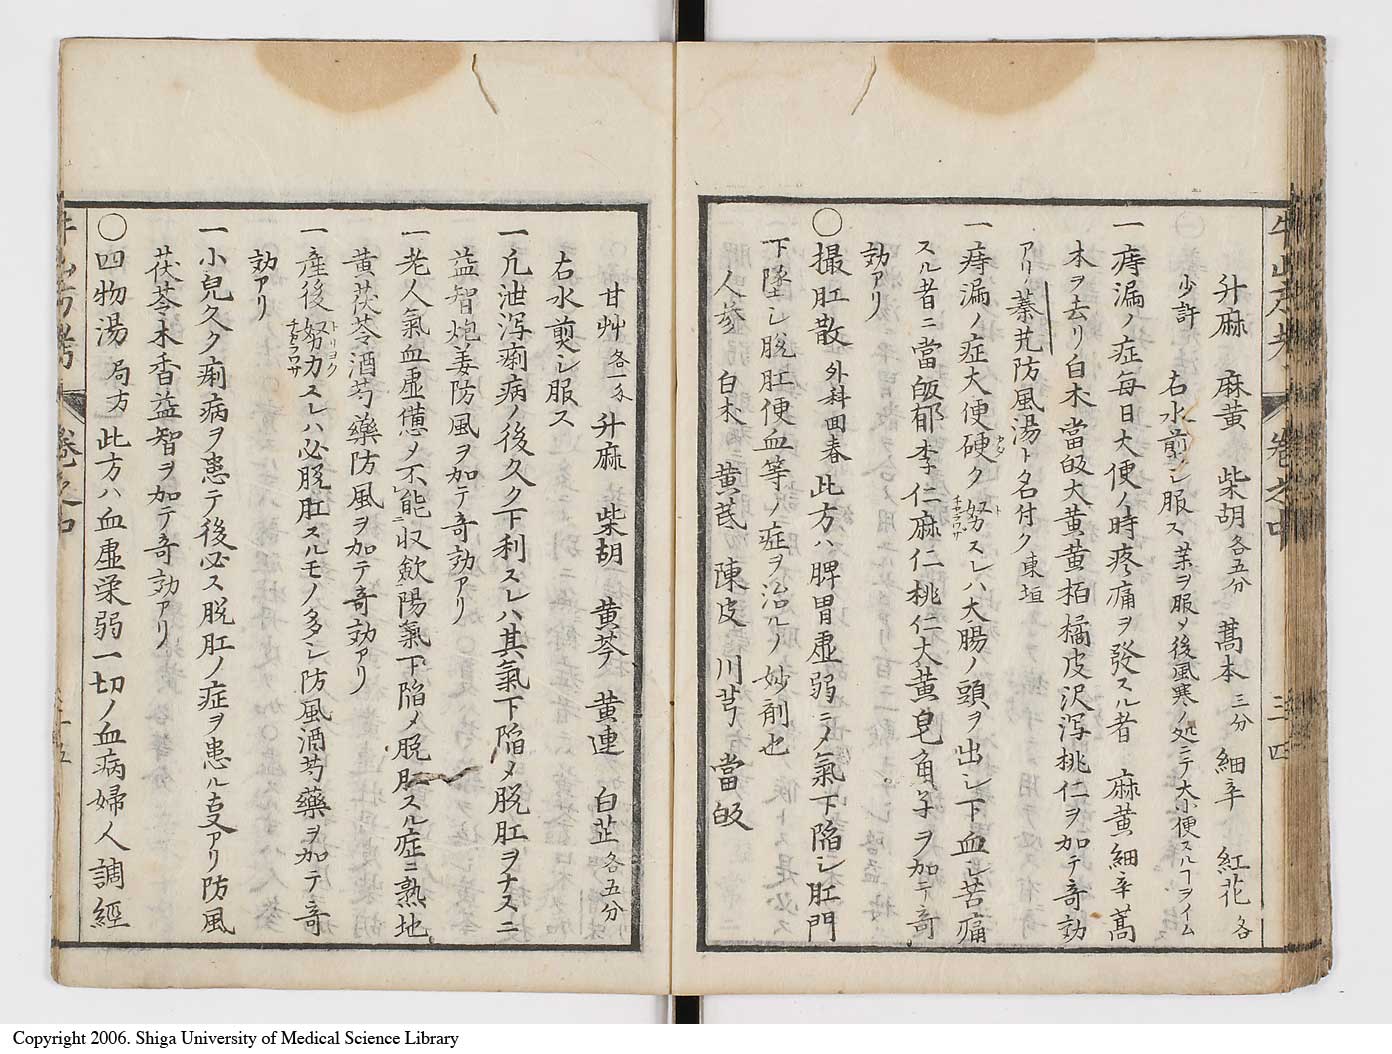 升麻 麻黄 柴胡各五分 藁本三分 細辛 紅花各
少許 右水煎シ服ス 薬ヲ服メ後風寒ノ処ニテ大小便スルヿヲイム
一 痔漏ノ症毎日大便ノ時疼痛ヲ發スル者 麻黄細辛藁
本ヲ去リ白木當皈大黄黄栢橘皮沢泻桃仁ヲ加テ奇効
アリ 蓁艽防風湯ト名付ク東垣
一 痔漏ノ症大便硬ク努スレハ大腸ノ頭ヲ出シ下血シ苦痛
スル者ニ當皈郁李仁麻仁桃仁大黄皂角子ヲ加テ奇
効アリ
〇撮肛散 外科回春 此方ハ脾胃虚弱ニメ氣下陷シ肛門
下墜シ脱肛便血等ノ症ヲ治ルノ妙剤也
人参 白木 黄茋 陳皮 川芎 當皈
牛山方考 卷之中 三十四
甘艸各一匁 升麻 柴胡 黄芩 黄連 白芷各五分
右水煎シ服ス
一 凢泄泻痢病ノ後久ク下利スレハ其氣下陷メ脱肛ヲナスニ
益智炮姜防風ヲ加テ奇効アリ
一 老人氣血虚憊メ不能收歛陽氣下陷メ脱肛スル症ニ熟地
黄茯苓酒芍藥防風ヲ加テ奇効アリ
一 産後努力スレハ必脱肛スルモノ多シ防風酒芍藥ヲ加テ奇
効アリ
一 小兒久ク痢病ヲ患テ後必ス脱肛ノ症ヲ患ル亥アリ防風
茯苓木香益智ヲ加テ奇効アリ
〇四物湯 局方 此方ハ血虚栄弱一切ノ血病婦人調經
牛山方考 卷之中